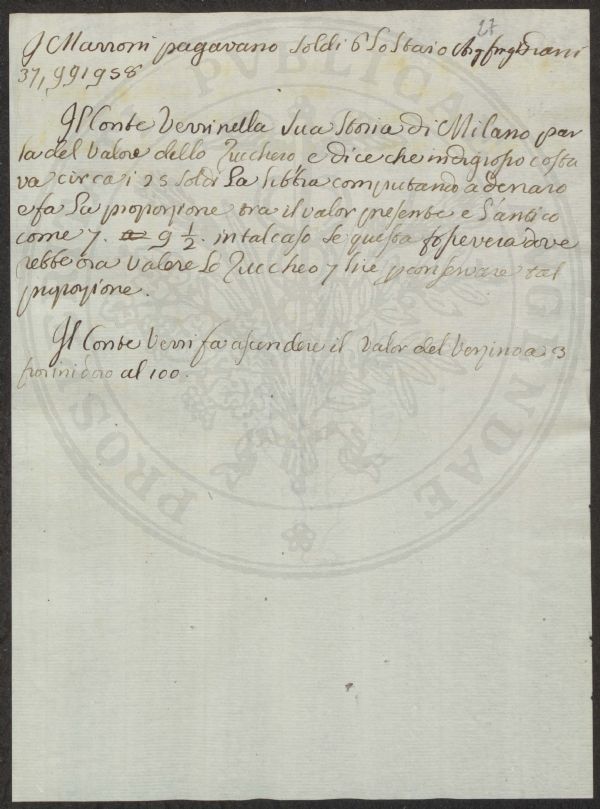 27
I Marroni pagavano soldi 6 Lo Staio
37, 991958
Il Conte Verri nella Sua Storia di Milano par
la del Valore dello Zucchero e dice che indigrosso costa
va circa i 25 Soldi La libbra computando a denaro
e fa La proporzione tra il valor presente e L'antico
come 7. 9 1/2. in tal caso Se questa fosse vera dove
rebbe ora Valere Lo Zuccheo 7 lire p conservare tal
proporzione.
Il Conte Verri fa ascendere il Valor del Verzino a 3
fiorini al 100.
PUBLICA
PROS